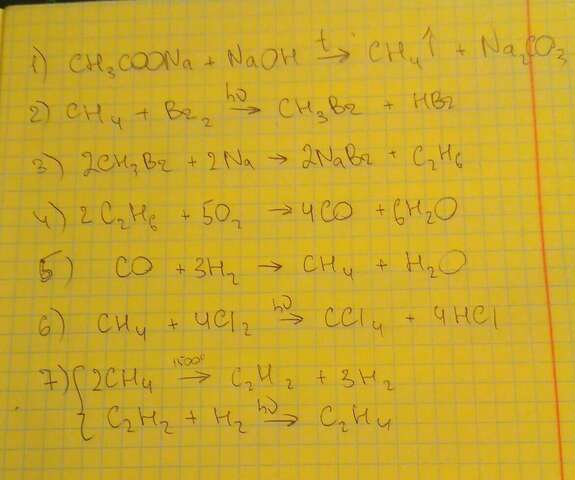 1) CH₃COONa + NaOH t→ CH₄↑ + Na₂CO₃
2) CH₄ + Br₂ hν→ CH₃Br + HBr
3) 2CH₃Br + 2Na → 2NaBr + C₂H₆
4) 2C₂H₆ + 5O₂ → 4CO + 6H₂O
5) CO + 3H₂ → CH₄ + H₂O
6) CH₄ + 4Cl₂ hν→ CCl₄ + 4HCl
7) { 2CH₄ 1500°→ C₂H₂ + 3H₂
C₂H₂ + H₂ hν→ C₂H₄